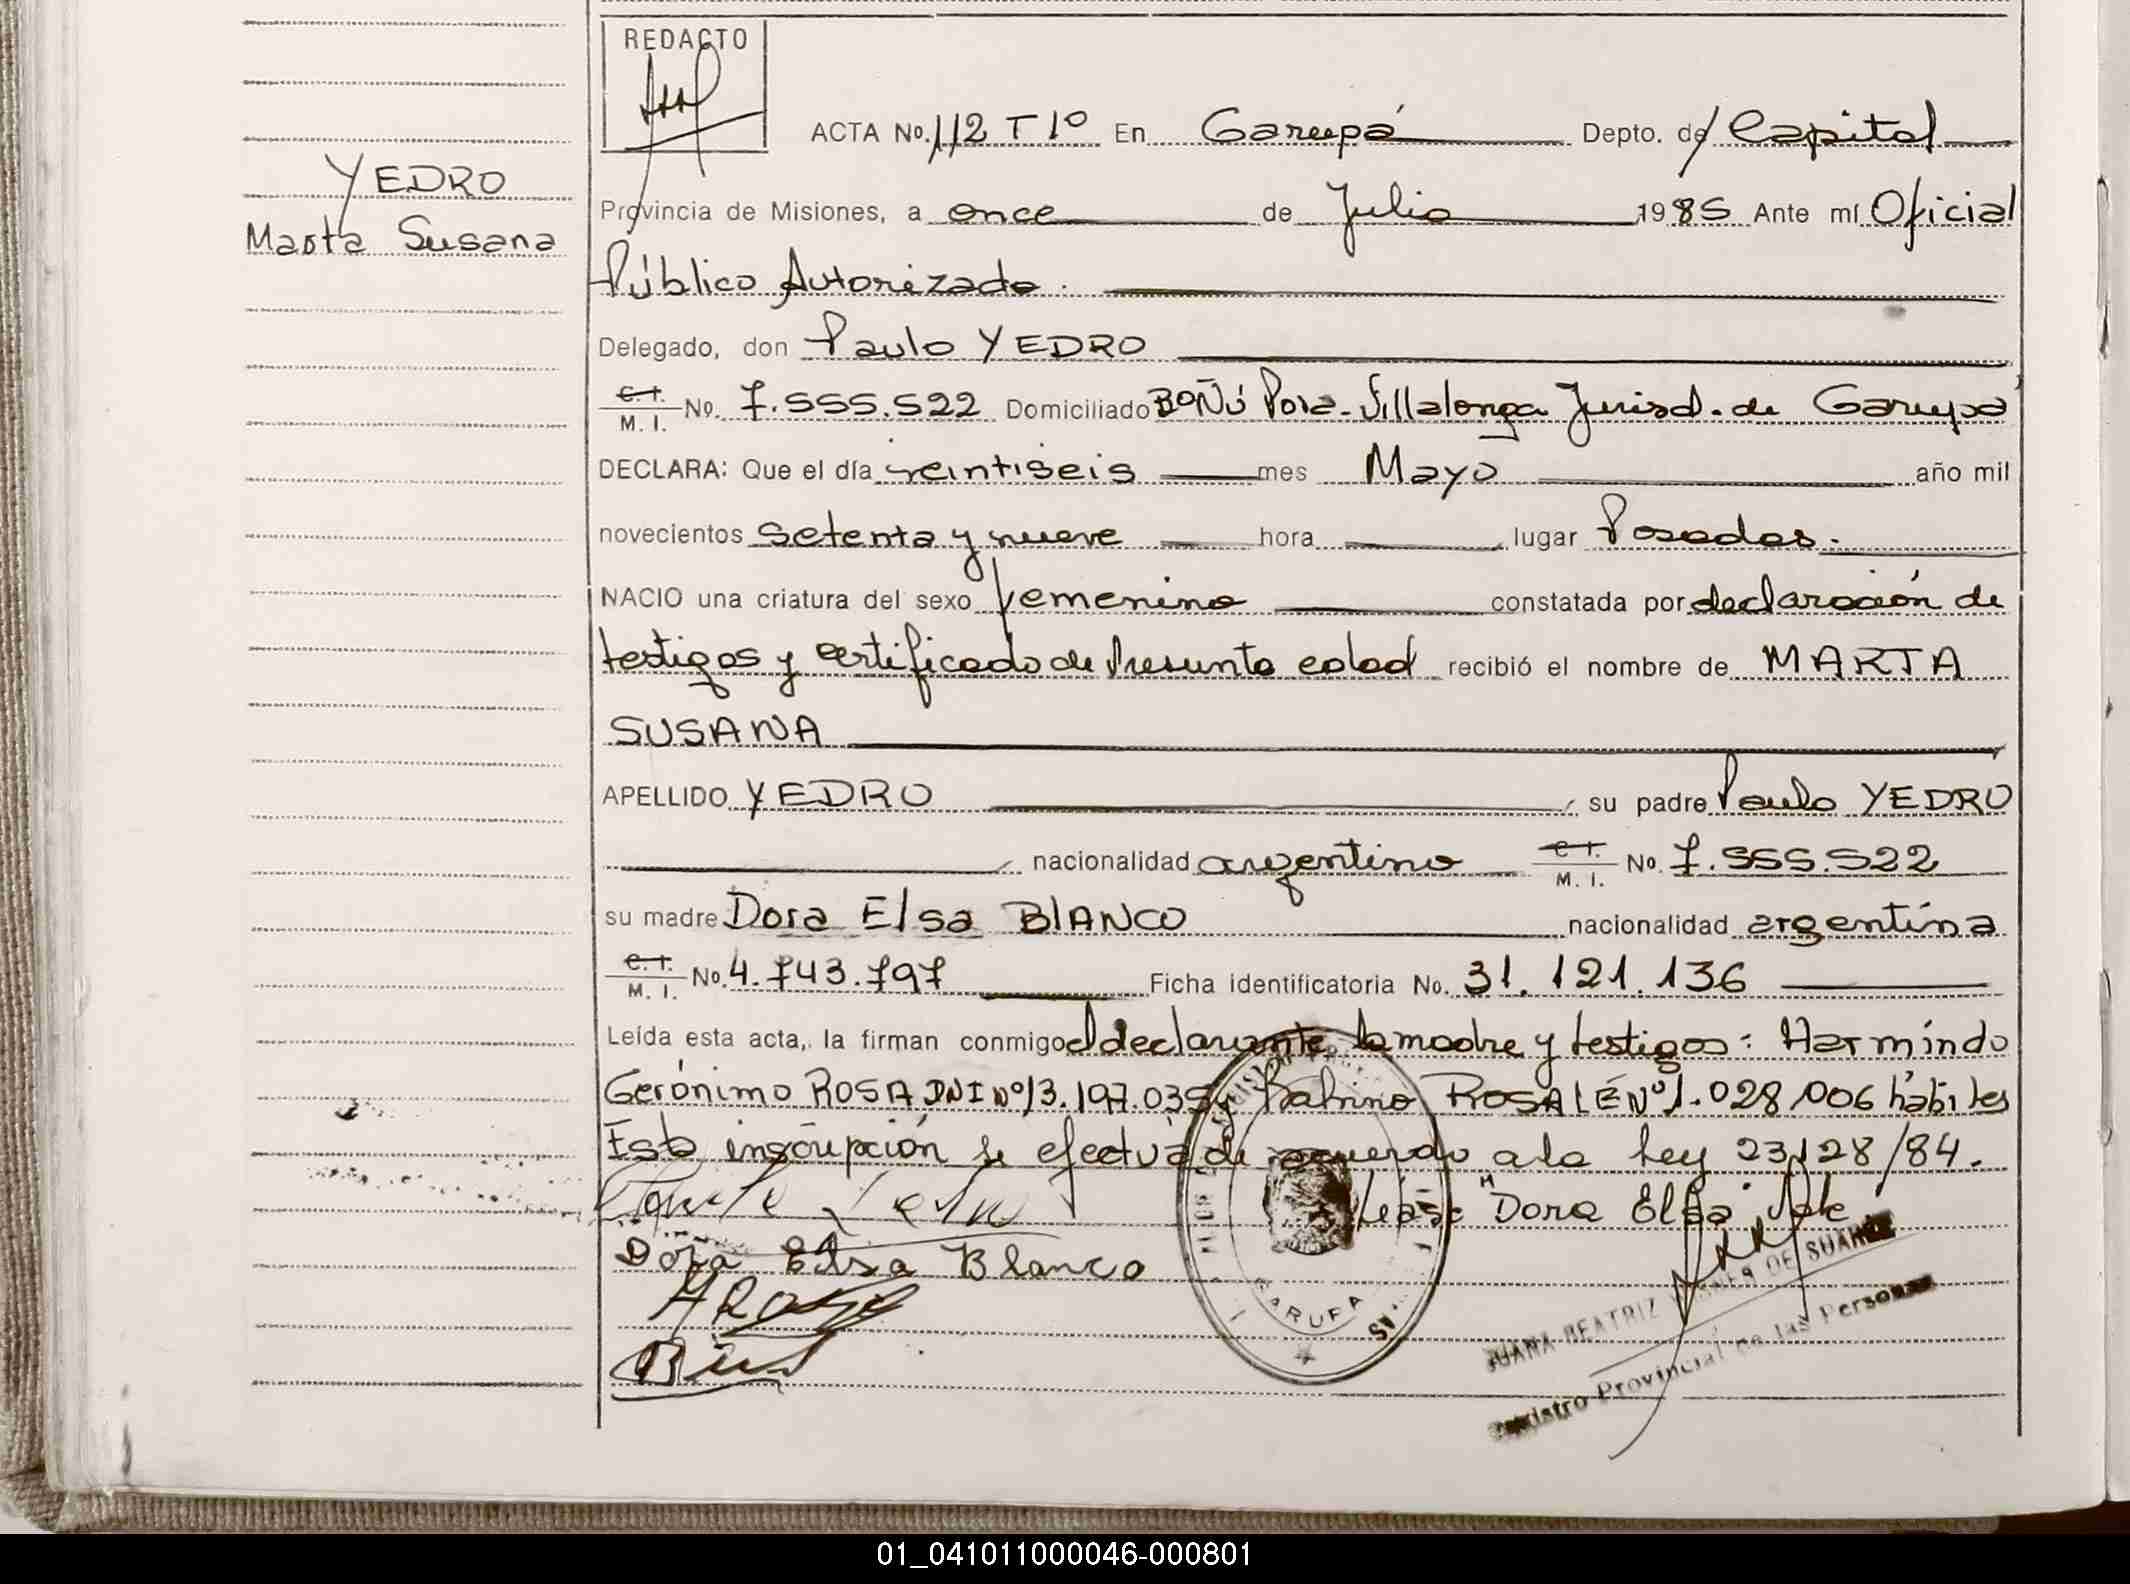 REDACTO
ACTA No. 112 T 1º En Garupá Depto. de Capital
YEDRO
Marta Susana
Provincia de Misiones, a once de Julio 1985 Ante mí Oficial
Público Autorizado.
Delegado, don Paulo YEDRO
C. I. M. I. No. 7.555.522 Domiciliado Villalonga Jurisd. de Garupá
DECLARA: Que el día veintiseis mes Mayo año mil
novecientos setenta y nueve hora lugar Posadas.
NACIO una criatura del sexo femenino constatada por declaración de
testigos y certificado de Presunta edad recibió el nombre de MARTA
SUSANA
APELLIDO YEDRO su padre Paulo YEDRO
nacionalidad argentino C. I. M. I. No. 7.555.522
su madre Dora Elsa BlANCO nacionalidad argentína
C. I. M. I. No. 4.743.797 Ficha identificatoria No. 31.121.136
Leída esta acta, la firman conmigo el declarante, la madre y testigos: Hermíndo
Gerónimo ROSA DNI Nº 13.197.035 y ROSA LE Nº 1.028.006 hábiles
Esta inscripción se efectúa de acuerdo a la Ley 23128/84.
Léase "Dora Elsa" Vale
Dora Elsa Blanco
GARUPA
JUANA BEATRIZ DE SUAREZ
Registro Provincial de las Personas
01_041011000046-000801